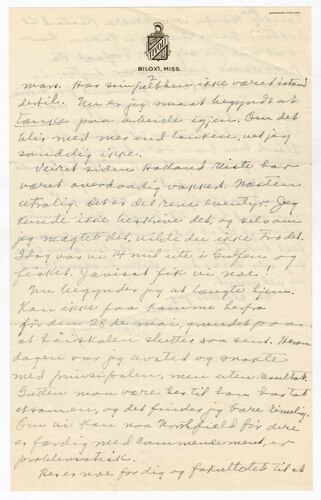 TIVOLI
BILOXI, MISS.
2
mars. Har simpelthen ikke været istand
dertil. Nu er jeg smaat begyndt at
tænke paa arbeide igjen. Om det
blir med mer end tanken, vet jeg
sandelig ikke.
Veiret siden Hatland reiste har
været overdaadig vakkert. Næsten
utrolig. Det er det rene eventyr. Jeg
kunde ikke beskrive det, og selv om
jeg magtet det, vilde du ikke tro det.
Idag var vi 14 mil ute i Gulfen og
fisket. Javisst fik vi noe!
Nu begynder jeg at længte hjem.
Kan ikke paa komme herfra
før den 28 de mai, grundet paa
at høiskolen slutter saa sent. Herom
dagen var jeg avsted og snakte
med prinsipalen, men uten resultat.
Gutten maa være her til han har tat
eksamen, og det finder jeg bare rimelig.
Om vi kan naa Northfield før dere
er færdig med commencement, er
problematisk.
Her er noe for dig og fakultetet til at